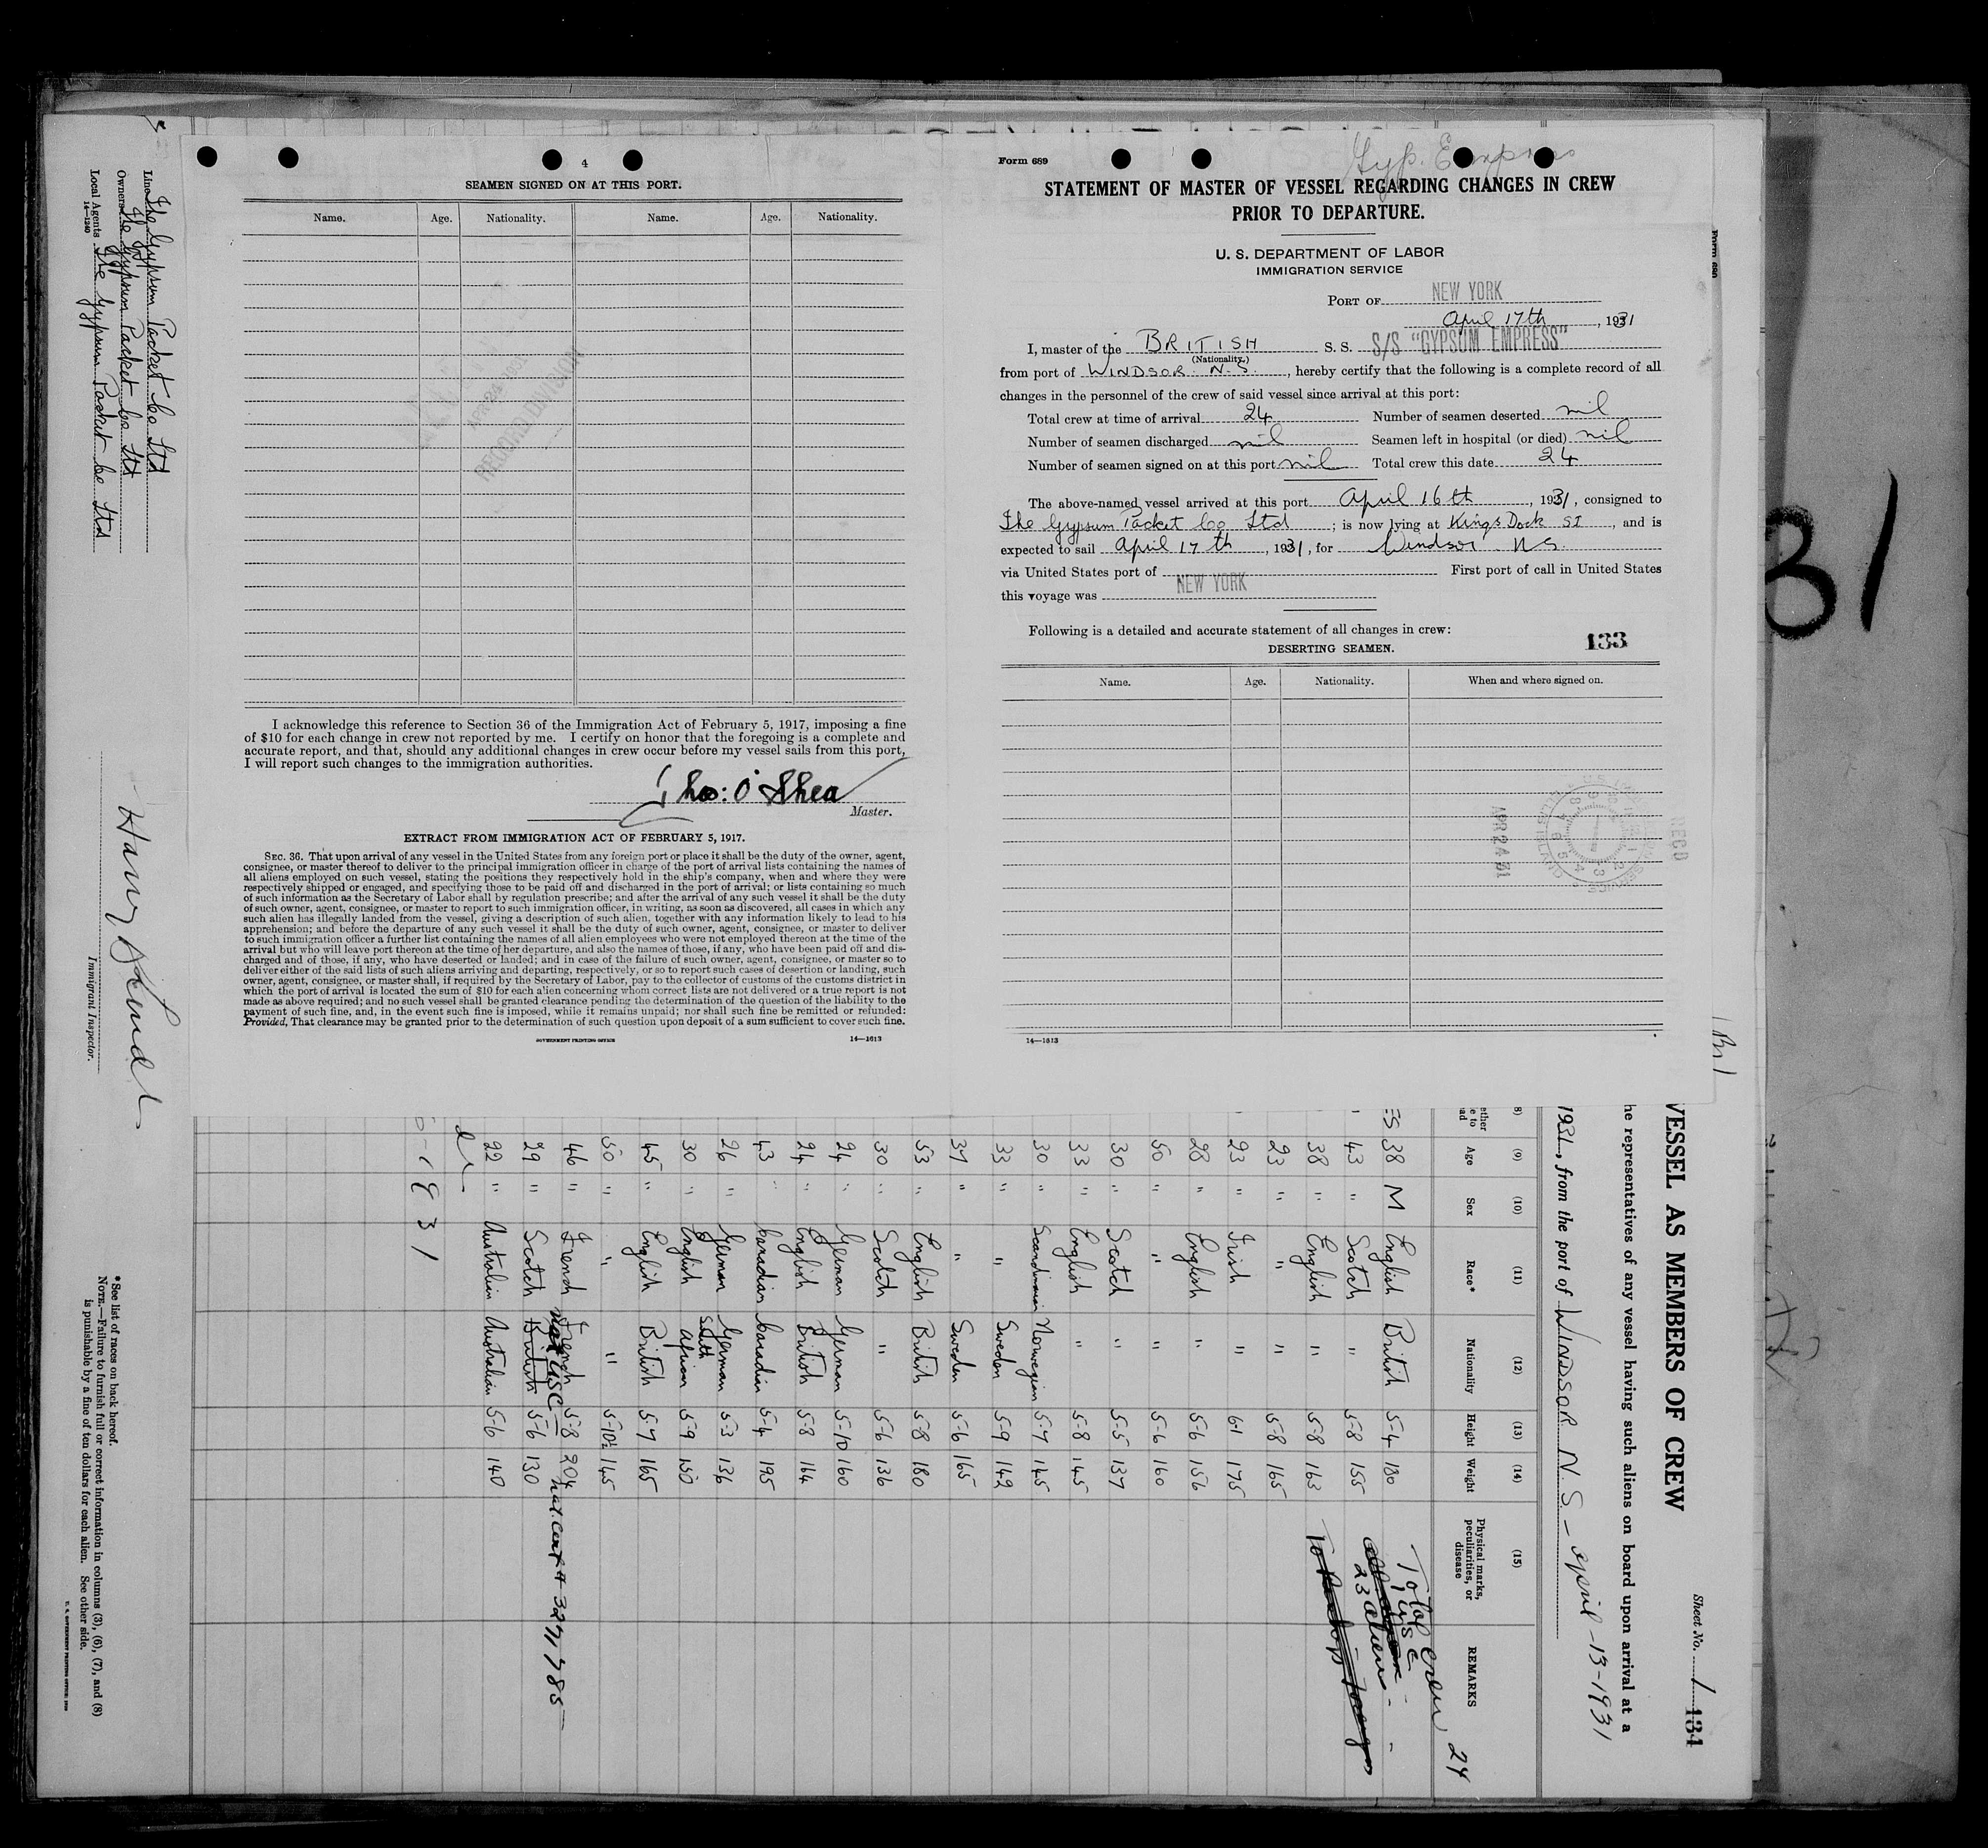 4
SEAMEN SIGNED ON AT THIS PORT.
Name. Age. Nationality. Name. Age. Nationality.
APR 24 1931
RECORD DIVISION
I acknowledge this reference to Section 36 of the Immigration Act of February 5, 1917, imposing a fine
of $10 for each change in crew not reported by me. I certify on honor that the foregoing is a complete and
accurate report, and that, should any additional changes in crew occur before my vessel sails from this port,
I will report such changes to the immigration authorities.
Thos: O'Shea
Master.
EXTRACT FROM IMMIGRATION ACT OF FEBRUARY 5, 1917.
SEC. 36. That upon arrival of any vessel in the United States from any foreign port or place it shall be the duty of the owner, agent,
consignee, or master thereof to deliver to the principal immigration officer in charge of the port of arrival lists containing the names of
all aliens employed on such vessel, stating the positions they respectively hold in the ship's company, when and where they were
respectively shipped or engaged, and specifying those to be paid off and discharged in the port of arrival; or lists containing so much
of such information as the Secretary of Labor shall by regulation prescribe; and after the arrival of any such vessel it shall be the duty
of such owner, agent, consignee, or master to report to such immigration officer, in writing, as soon as discovered, all cases in which any
such alien has illegally landed from the vessel, giving a description of such alien, together with any information likely to lead to his
apprehension; and before the departure of any such vessel it shall be the duty of such owner, agent, consignee, or master to deliver
to such immigration officer a further list containing the names of all alien employees who were not employed thereon at the time of the
arrival but who will leave port thereon at the time of her departure, and also the names of those, if any, who have been paid off and dis-
charged and of those, if any, who have deserted or landed; and in case of the failure of such owner, agent, consignee, or master so to
deliver either of the said lists of such aliens arriving and departing, respectively, or so to report such cases of desertion or landing, such
owner, agent, consignee, or master shall, if required by the Secretary of Labor, pay to the collector of customs of the customs district in
which the port of arrival is located the sum of $10 for each alien concerning whom correct lists are not delivered or a true report is not
made as above required; and no such vessel shall be granted clearance pending the determination of the question of the liability to the
payment of such fine, and, in the event such fine is imposed, while it remains unpaid; nor shall such fine be remitted or refunded:
Provided, That clearance may be granted prior to the determination of such question upon deposit of a sum sufficient to cover such fine.
GOVERNMENT PRINTING OFFICE 14—1613
Form 689
Gyp. Empress
STATEMENT OF MASTER OF VESSEL REGARDING CHANGES IN CREW
PRIOR TO DEPARTURE.
U. S. DEPARTMENT OF LABOR
IMMIGRATION SERVICE
PORT OF NEW YORK
April 17th, 1931
I, master of the BRITISH S. S. S/S "GYPSUM EMPRESS"
(Nationality)
from port of WINDSOR. N.S., hereby certify that the following is a complete record of all
changes in the personnel of the crew of said vessel since arrival at this port:
Total crew at time of arrival 24 Number of seamen deserted nil
Number of seamen discharged nil Seamen left in hospital (or died) nil
Number of seamen signed on at this port nil Total crew this date 24
The above-named vessel arrived at this port April 16th, 1931, consigned to
The Gypsum Packet Co Ltd; is now lying at Kings Dock SI, and is
expected to sail April 17th, 1931, for Windsor N.S.
via United States port of First port of call in United States
this voyage was NEW YORK
Following is a detailed and accurate statement of all changes in crew:
133
DESERTING SEAMEN.
Name. Age. Nationality. When and where signed on.
REC'D
APR 24 31
14—1613
31
Form 689
Sheet No. 1 134
VESSEL AS MEMBERS OF CREW
he representatives of any vessel having such aliens on board upon arrival at a
1931, from the port of WINDSOR N.S – April -13-1931
(9) (10) (11) (12) (13) (14) (15)
Age Sex Race* Nationality Height Weight Physical marks, peculiarities, or disease REMARKS
Total crew 24
1 USC
23 alien
38 M English British 5-4 180
43 " Scotch " 5-8 155
38 " English " 5-8 163
23 " " " 5-8 165
23 " Irish " 6-1 175
28 " English " 5-6 156
50 " " " 5-6 160
30 " Scotch " 5-5 137
33 " English " 5-8 145
30 " Scandinavian Norwegian 5-7 145
33 " " Sweden 5-9 142
37 " " Sweden 5-6 165
53 " English British 5-8 180
30 " Scotch " 5-6 136
24 " German German 5-10 160
24 " English British 5-8 164
43 " Canadian Canadian 5-4 195
26 " German German 5-3 136
30 " English South African 5-9 150
45 " English British 5-7 165
50 " " " 5-10½ 145
46 " French French 5-8 204
Nat USC nat. cert #
29 " Scotch British 5-6 130
22 " Australian Australian 5-6 140
Line The Gypsum Packet Co Ltd
Owners The Gypsum Packet Co Ltd
Local Agents The Gypsum Packet Co Ltd
14—1240
Immigrant Inspector.
*See list of races on back hereof.
NOTE.—Failure to furnish full or correct information in columns (3), (6), (7), and (8)
is punishable by a fine of ten dollars for each alien. See other side.